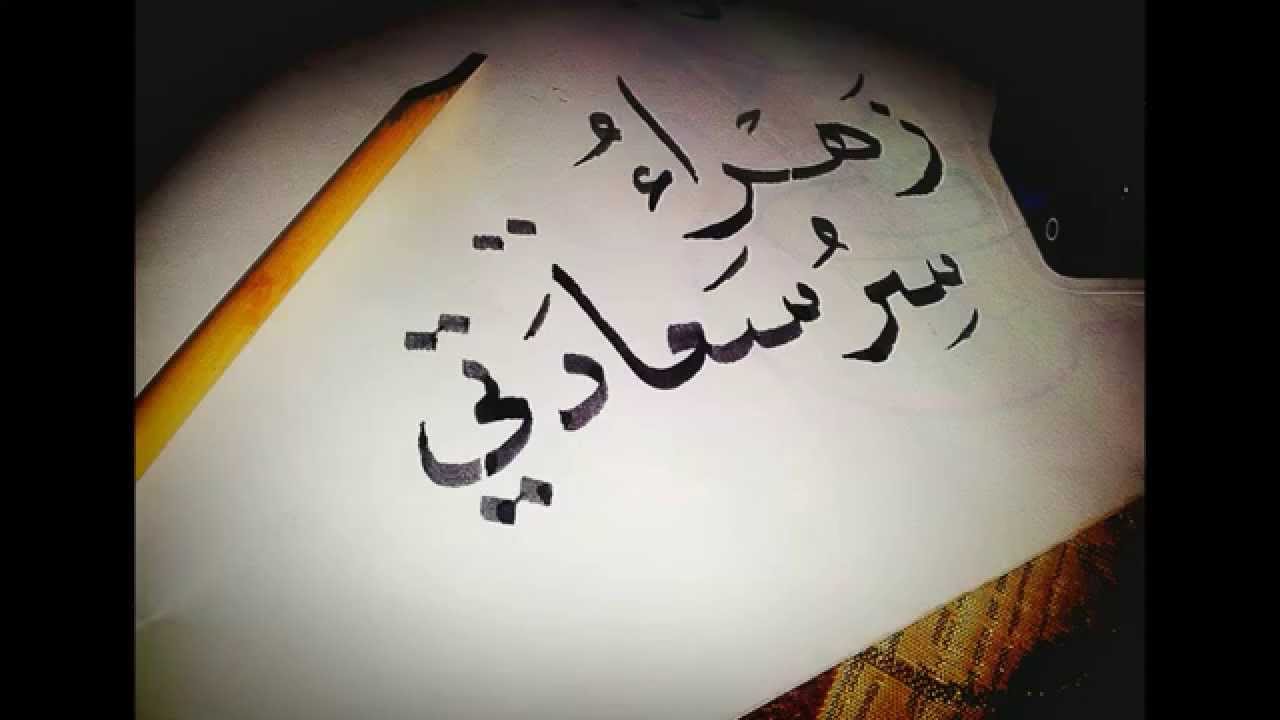 زَهْرَاءُ
سِرُ سَعادَتي